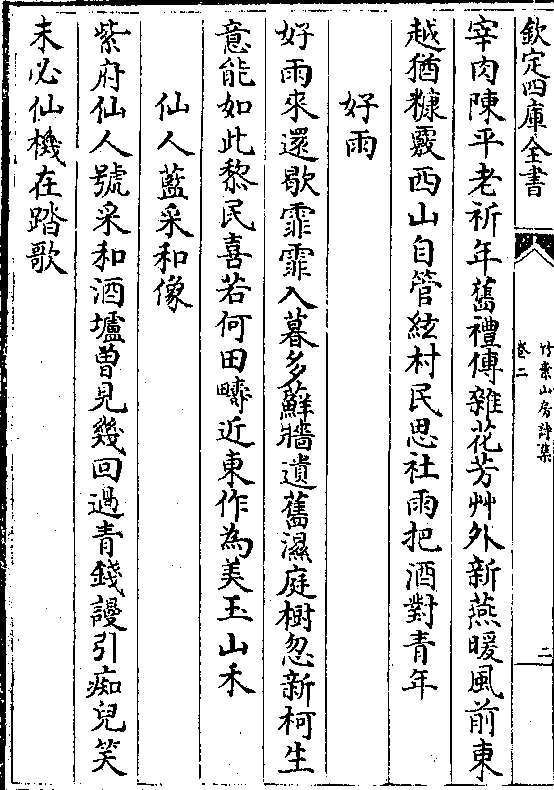 欽定四庫全書
竹素山房詩集
卷二
二
宰肉陳平老祈年舊禮傳雜花芳艸外新燕暖風前東
越猶糠覈西山自管絃村民思社雨把酒對青年
好雨
好雨來還歇霏霏入暮多蘚牆遺舊濕庭樹忽新柯生
意能如此黎民喜若何田疇近東作為美玉山禾
仙人藍采和像
紫府仙人號采和酒壚曽見幾回過青錢謾引痴兒笑
未必仙機在踏歌